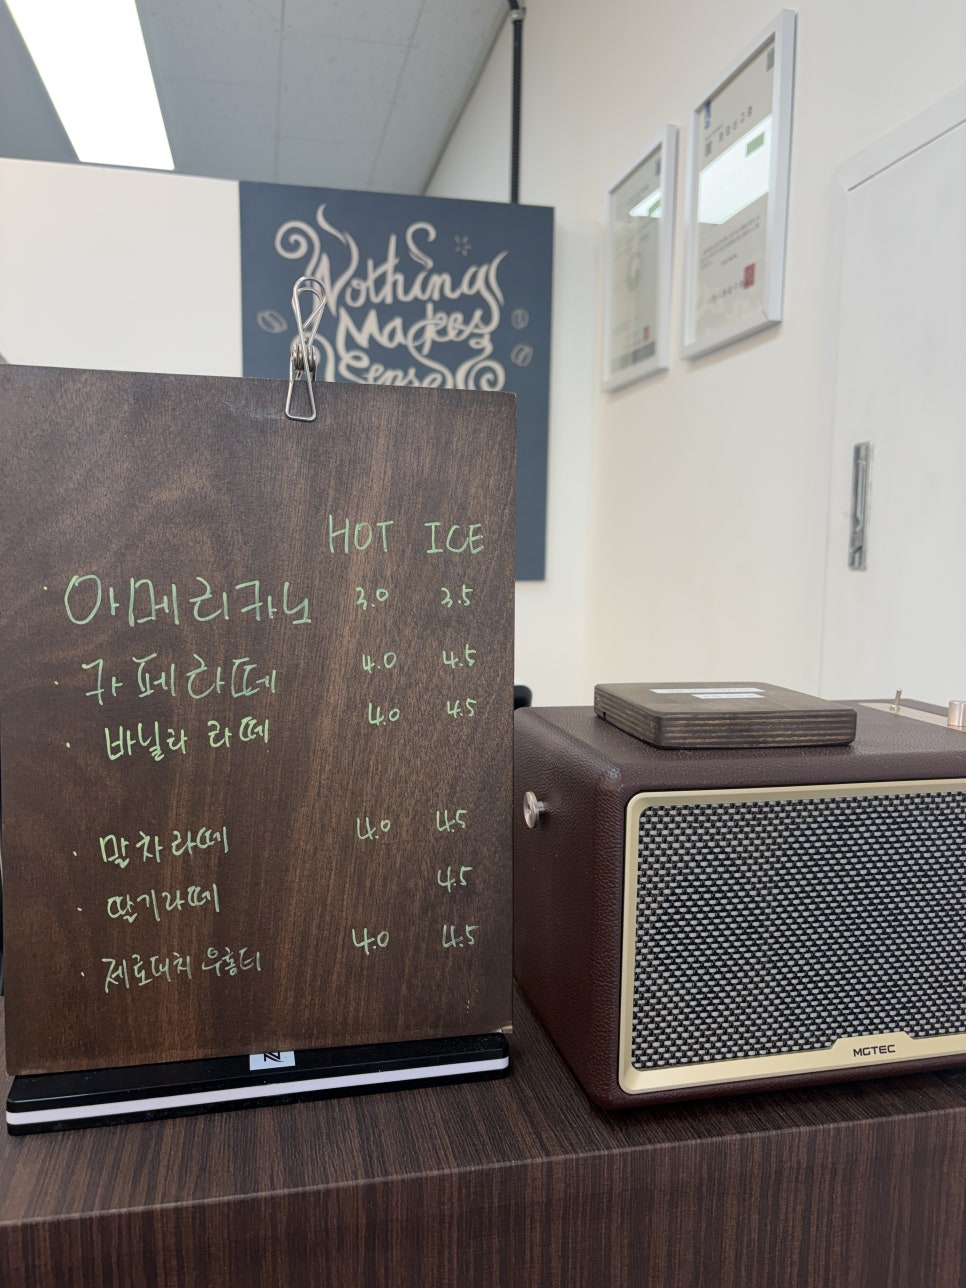 Nothing
Makes
Sense
HOT ICE
· 아메리카노 3.0 3.5
· 카페라떼 4.0 4.5
· 바닐라 라떼 4.0 4.5
· 말차라떼 4.0 4.5
· 딸기라떼 4.5
· 제로대치 우롱티 4.0 4.5
MGTEC